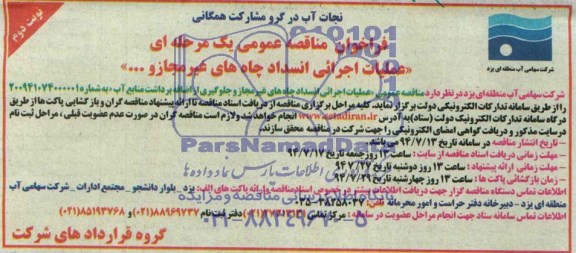 نوبت دوم
نجات آب در گرو مشارکت همگانی
فراخوان مناقصه عمومی یک مرحله ای
«عملیات اجرائی انسداد چاه های غیرمجاز و ...»
شرکت سهامی آب منطقه ای یزد
شرکت سهامی آب منطقه ای یزد در نظر دارد مناقصه عمومی «عملیات اجرائی انسداد چاه های غیرمجاز و جلوگیری از اضافه برداشت منابع آب» به شماره ۲۰۰۹۴۱۰۷۴۰۰۰۰۰۱
را از طریق سامانه تدارکات الکترونیکی دولت برگزار نماید. کلیه مراحل برگزاری مناقصه از دریافت اسناد مناقصه تا ارائه پیشنهاد مناقصه گران و بازگشایی پاکت ها از طریق
درگاه سامانه تدارکات الکترونیک دولت (ستاد) به آدرس www.setadiran.ir انجام خواهد شد و لازم است مناقصه گران در صورت عدم عضویت قبلی، مراحل ثبت نام
در سایت مذکور و دریافت گواهی امضای الکترونیکی را جهت شرکت در مناقصه محقق سازند.
- تاریخ انتشار مناقصه در سامانه تاریخ ۹۴/۷/۱۲ می‌باشد.
- مهلت زمانی دریافت اسناد مناقصه از سایت: ساعت ۱۳ روز جمعه تاریخ ۹۴/۷/۱۷
- مهلت زمانی ارائه پیشنهاد: ساعت ۱۳ روز دوشنبه تاریخ ۹۴/۷/۲۷
- زمان بازگشایی پاکت ها: ساعت ۱۳ روز چهارشنبه تاریخ ۹۴/۷/۲۹
- اطلاعات تماس دستگاه مناقصه گزار جهت دریافت اطلاعات بیشتر در خصوص اسناد مناقصه و ارائه پاکت های الف: یزد _ بلوار دانشجو _ مجتمع ادارات _ شرکت سهامی آب
منطقه ای یزد - دبیرخانه دفتر حراست و امور محرمانه تلفن: ۰۳۵-۳۸۲۵۸۰۳۷
- اطلاعات تماس سامانه ستاد جهت انجام مراحل عضویت در سامانه: مرکز تماس (۰۲۱) دفتر ثبت نام ۸۸۹۶۹۷۳۷(۰۲۱) و ۸۵۱۹۳۷۶۸(۰۲۱)
گروه قرارداد های شرکت
ParsNamadData
پایگاه اطلاع رسانی مناقصه و مزایده
۰۲۱-۸۸۳۴۹۶۷۰-۵